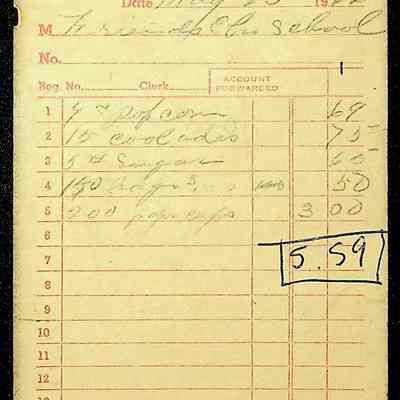 Date May 19
M Friends School
No.
Reg. No. Clerk ACCOUNT FORWARDED
1 popcorn 69
2 15 coolades 75
3 5# Sugar 65
4 150 bags 50
5 200 paper cups 3 00
6
7 5.59
8
9
10
11
12